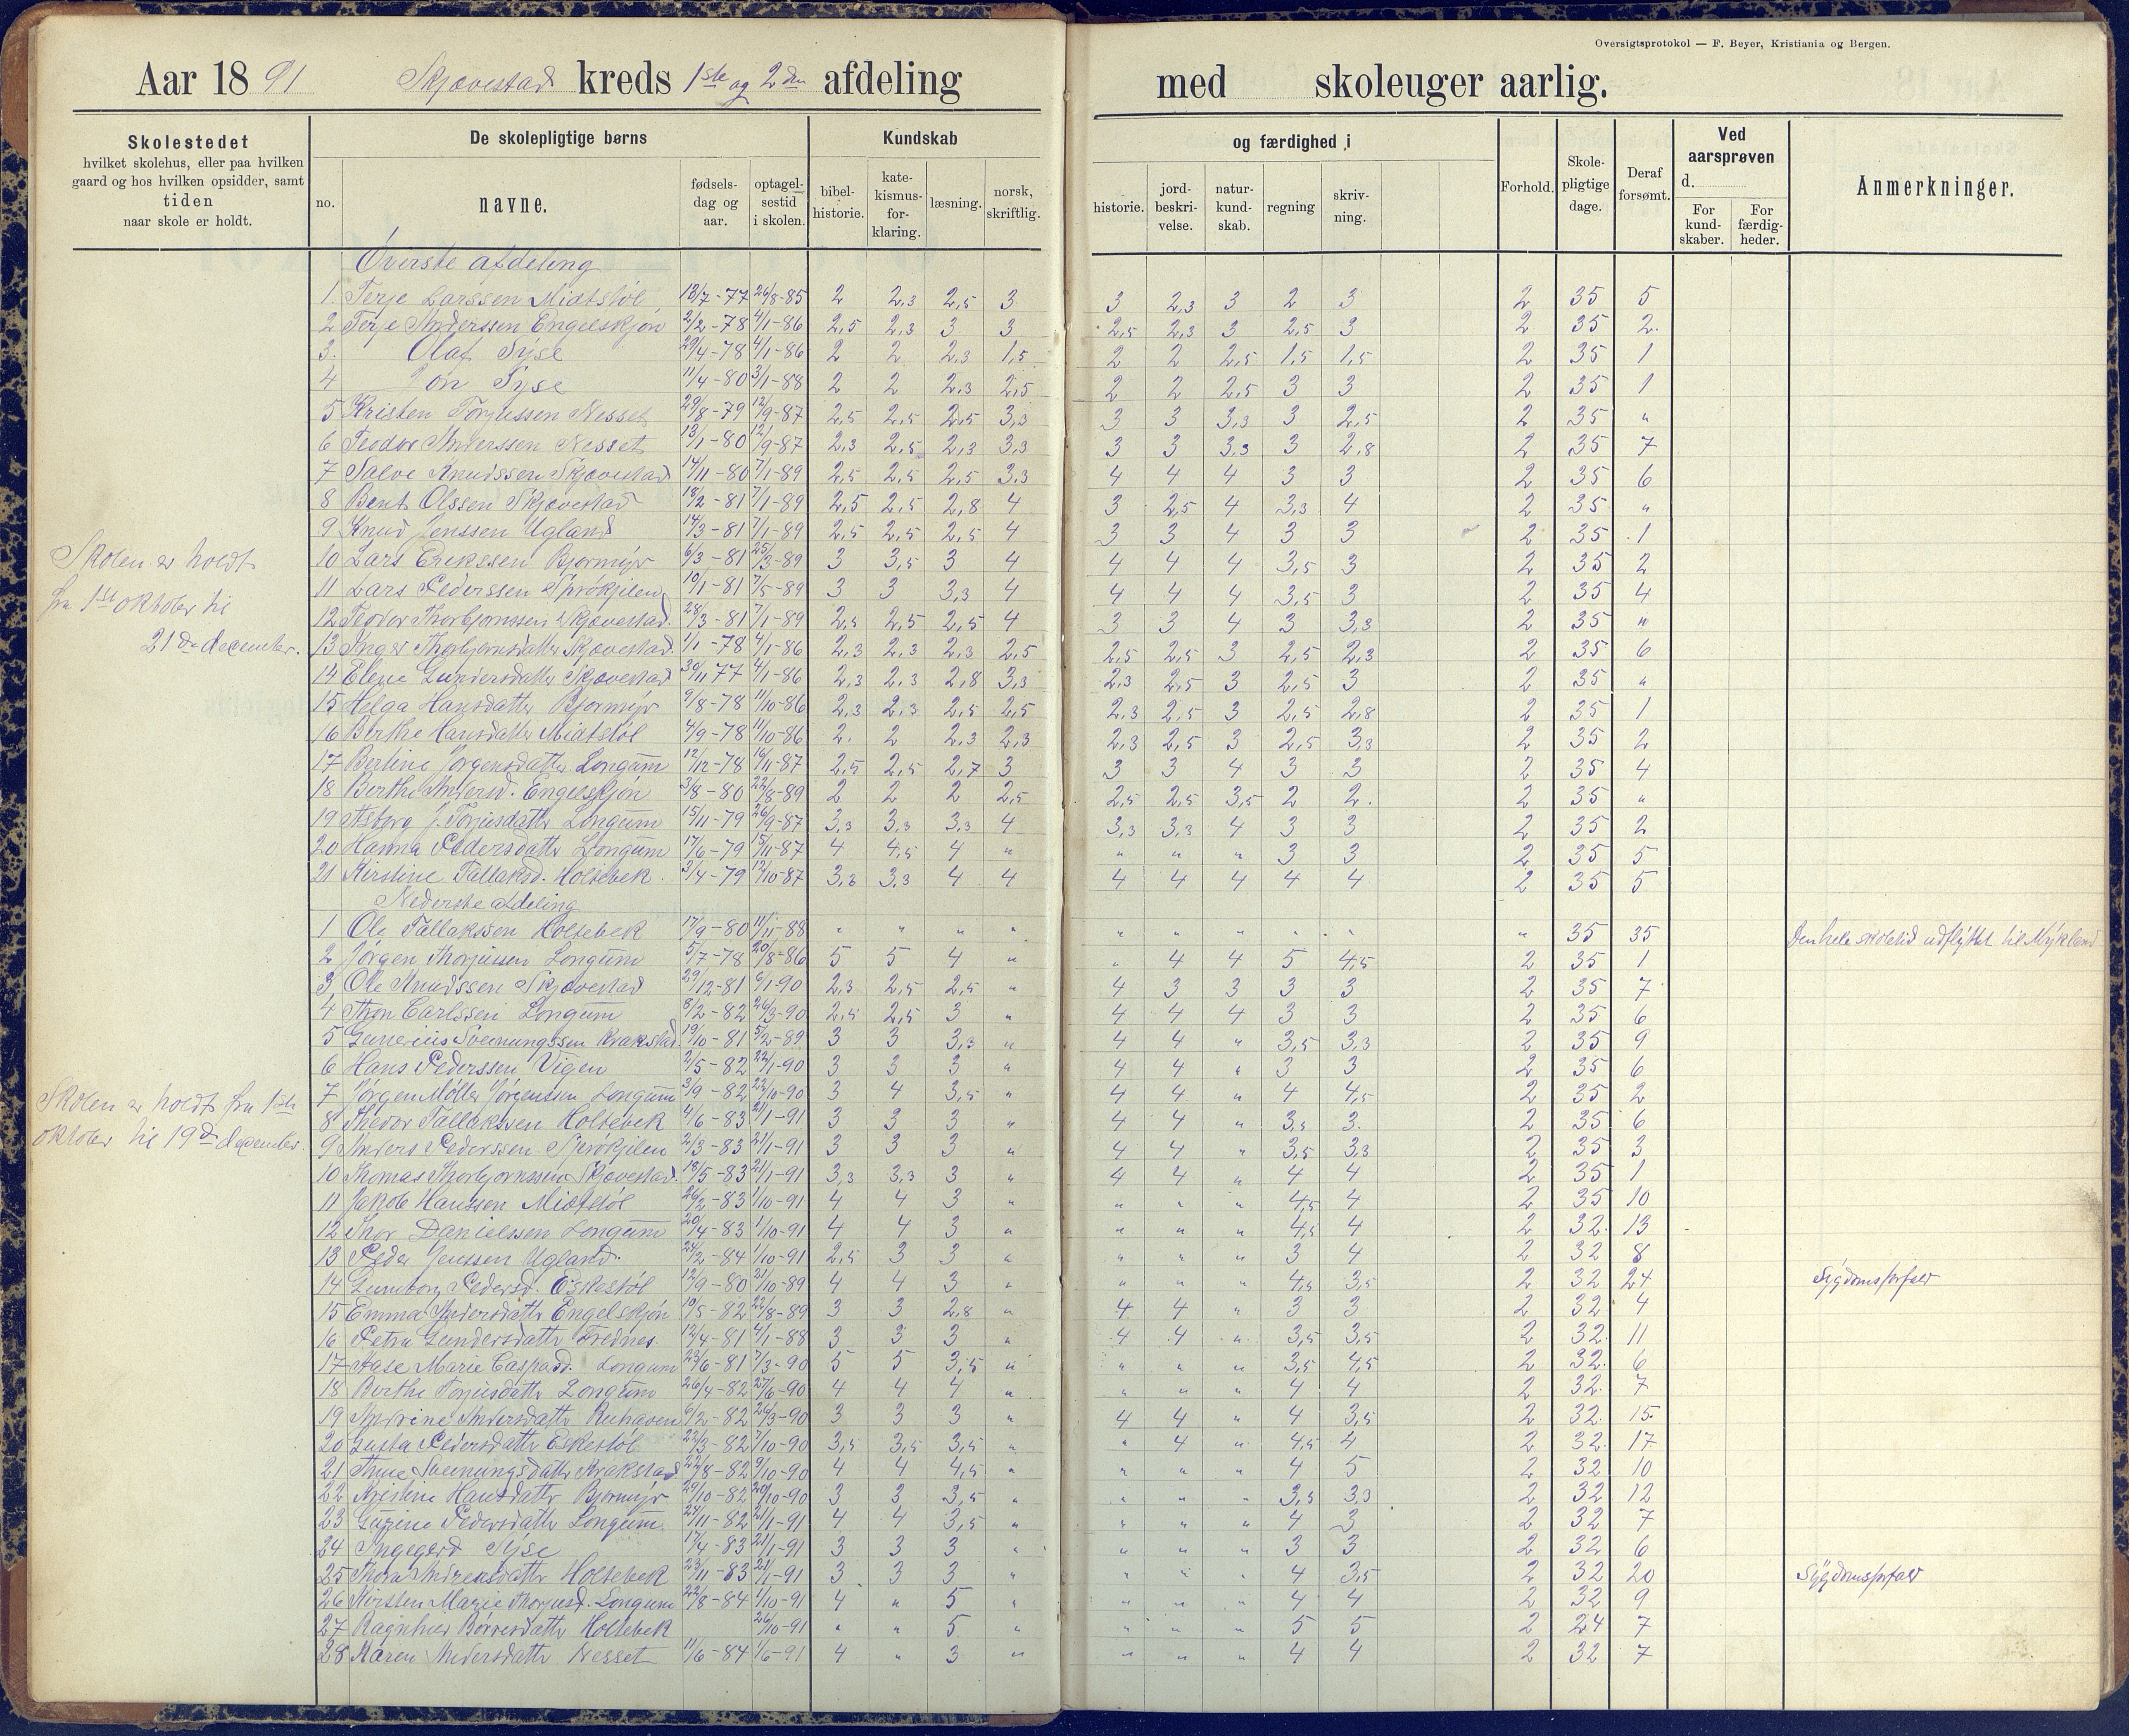 Oversigtsprotokol — F. Beyer, Kristiania og Bergen.
Aar 1891 Skjævestad kreds 1ste og 2den afdeling med skoleuger aarlig.
Skolestedet
hvilket skolehus, eller paa hvilken
gaard og hos hvilken opsidder, samt
tiden
naar skole er holdt.
De skolepligtige børns
no.
navne.
fødsels-
dag og
aar.
optagel-
sestid
i skolen.
Kundskab
bibel-
historie.
kate-
kismus-
for-
klaring.
læsning.
norsk,
skriftlig.
og færdighed i
historie.
jord-
beskri-
velse.
natur-
kund-
skab.
regning
skriv-
ning.
Forhold.
Skole-
pligtige
dage.
Deraf
forsømt.
Ved
aarsprøven
d.
For
kund-
skaber.
For
færdig-
heder.
Anmerkninger.
Øverste afdeling
1. Terje Larssen Midtstøl 13/7-77 26/8-85 2 2,3 2,5 3 3 2,3 3 2 3 2 35 5
2 Terje Anderssen Engelskjøn 2/2-78 4/1-86 2,5 2,3 3 3 2,5 2,3 3 2,5 3 2 35 2.
3. Olaf Syse 29/4-78 4/1-86 2 2 2,3 1,5 2 2 2,5 1,5 1,5 2 35 1
4 Jon Syse 11/4-80 3/1-88 2 2 2,3 2,5 2 2 2,5 3 3 2 35 1
5 Kristen Torjussen Nesset 29/8-79 12/9-87 2,5 2,5 2,5 3,3 3 3 3,3 3 2,5 2 35 "
6 Teodor Anderssen Nesset 13/1-80 12/9-87 2,3 2,5 2,3 3,3 3 3 3,3 3 2,8 2 35 7
7 Salve Knudssen Skjævestad 14/11-80 7/1-89 2,5 2,5 2,5 3,3 4 4 4 3 3 2 35 6
8 Bent Olssen Skjævestad 18/2-81 7/1-89 2,5 2,5 2,8 4 3 2,5 4 3,3 4 2 35 "
9 Knud Jenssen Ugland 14/3-81 7/1-89 2,5 2,5 2,5 4 3 3 4 3 3 2 35 1
10 Lars Erikssen Bjormyr 6/3-81 25/3-89 3 3,5 3 4 4 4 4 3,5 3 2 35 2
11 Lars Pederssen Sprøkjilen 10/1-81 7/5-89 3 3 3,3 4 4 4 4 3,5 3 2 35 4
12 Teodor Thorbjørnssen Skjævestad 28/3-81 7/1-89 2,5 2,5 2,5 4 3 3 4 3 3,3 2 35 "
13 Inger Thorbjørnsdatter Skjævestad 1/1-78 4/1-86 2,3 2,3 2,3 2,5 2,5 2,5 3 2,5 2,3 2 35 6
14 Elene Gundersdatter Skjævestad 30/11 77 4/1-86 2,3 2,3 2,8 3,3 2,3 2,5 3 2,5 3 2 35 "
15 Helga Hansdatter Bjormyr 9/8-78 11/10-86 2,3 2,3 2,5 2,5 2,3 2,5 3 2,5 2,8 2 35 1
16 Berthe Hansdatter Midtstøl 4/9-78 11/10-86 2. 2 2,3 2,3 2,3 2,5 3 2,5 3,3 2 35 2
17 Berline Jørgensdatter Longum 12/12-78 16/11-87 2,5 2,5 2,7 3 3 3 4 3 3 2 35 4
18 Berthe Andersd. Engelskjøn 3/8-80 22/8-89 2 2 2 2,5 2,5 2,5 3,5 2 2. 2 35 "
19 Asborg J. Torjusdatter Longum 15/11-79 26/9-87 3,3 3,3 3,3 4 3,3 3,3 4 3 3 2 35 2
20 Hanna Pedersdatter Longum 17/6-79 15/11-87 4 4,5 4 " " " " 3 3 2 35 5
21 Kirstine Tallaksd. Holtebek 3/4-79 12/10-87 3,3 3,3 4 4 4 4 4 4 4 2 35 5
Nederste afdeling
1 Ole Tallakssen Holtebek 17/9-80 11/11-88 " " " " " " " " " " 35 35 Den hele skoletid udflyttet til Mykland
2 Jørgen Thorjussen Longum 5/7-78 20/8-86 5 5 4 " " 4 4 5 4,5 2 35 1
3 Ole Knudssen Skjævestad 29/12-81 6/1-90 2,3 2,5 2,5 " 4 3 3 3 3 2 35 7
4 Thor Carlssen Longum 8/2-82 26/3-90 2,5 2,5 3 " 4 4 4 3 3 2 35 6
5 Gunerius Sveinungssen Krakstad 19/10-81 5/2-89 3 3 3,3 " 4 4 " 3,5 3,3 2 35 9
6 Hans Pederssen Vigen 2/5-82 22/1-90 3 3 3 " 4 4 " 3 3 2 35 6
7 Jørgen Møller Jørgenssen Longum 3/9-82 22/10-90 3 4 3,5 " 4 4 " 4 4,5 2 35 2
8 Thedor Tallakssen Holtebek 4/6-83 21/1-91 3 3 3 " 4 4 " 3,5 3. 2 35 6
9 Anders Pederssen Sprøkjilen 2/3-83 21/1-91 3 3 3 " 4 4 " 3,5 3,3 2 35 3
10 Thomas Thorbjørnssen Skjævestad 18/5-83 21/1-91 3,3 3,3 3 " 4 4 " 4 4 2 35 1
11 Jakob Hanssen Midtstøl 26/2-83 1/10-91 4 4 3 " " " " 4,5 4 2 35 10
12 Thor Danielssen Longum 20/4-83 1/10-91 4 4 3 " " " " 4,5 4 2 32 13
13 Peder Jenssen Ugland 24/2-84 1/10-91 2,5 3 3 " " " " 3 4 2 32 8
14 Gunborg Pedersd. Eskestøl 12/9-80 21/10-89 4 4 3 " " " " 4,5 3,5 2 32 24 Sygdomsforfald
15 Emma Andersdatter Engelskjøn 10/5-82 22/8-89 3 3 2,8 " 4 4 " 3 3 2 32 4
16 Petra Gundersdatter Frednes 12/4-81 4/1-88 3 3 3 " 4 4 " 3,5 3,5 2 32 11
17 Aase Marie Caspasd. Longum 23/6-81 7/3-90 5 5 3,5 " " " " 3,5 4,5 2 32 6
18 Berthe Torjusdatter Longum 26/4-82 27/6-90 4 4 4 " " " " 4 4 2 32 7
19 Andrine Andersdatter Ruhaven 6/2-82 26/3-90 3 3 3 " 4 4 " 4 3,5 2 32 15
20 Gusta Pedersdatter Eskestøl 22/3-82 7/10-90 3,5 3,5 3,5 " " 4 " 4,5 4 2 32 17
21 Thine Sveinungsdatter Krakstad 22/8-82 9/10-90 4 4 4,5 " " " " 4 5 2 32 10
22 Kristine Hansdatter Bjormyr 29/10-82 20/10-90 3 3 3,5 " " " " 3,5 3,3 2 32 12
23 Gurene Pedersdatter Longum 27/11-82 21/1-91 4 4 3,5 " " " " 4 3 2 32 7
24 Ingegerd Syse 17/4-83 21/1-91 3 3 3 " " " " 3 3 2 32 6
25 Thora Andreasdatter Holtebek 23/11-83 21/1-91 3 3 3 " " " " 4 3,5 2 32 20 Sygdomsforfald
26 Kirsten Marie Thorjusd. Longum 22/8-84 1/10-91 4 " 5 " " " " 4 4 2 32 9
27 Ragnhild Børresdatter Holtebek 26/10-91 " " 5 " " " " 5 5 2 24 7
28 Karen Andersdatter Nesset 11/6-84 1/6-91 4 " 3 " " " " 4 4 2 32 7
Skolen er holdt
fra 1ste oktober til
21de december.
Skolen er holdt fra 1ste
oktober til 19de december.